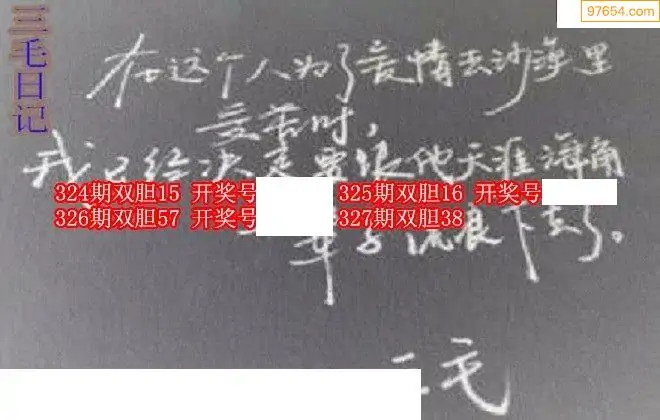 97654.com
三毛日记
在这个人为了爱情去沙漠里
受苦时，
我已经决定要跟他天涯海角
324期双胆15 开奖号 325期双胆16 开奖号
326期双胆57 开奖号 327期双胆38
辈子流浪下去了。
毛